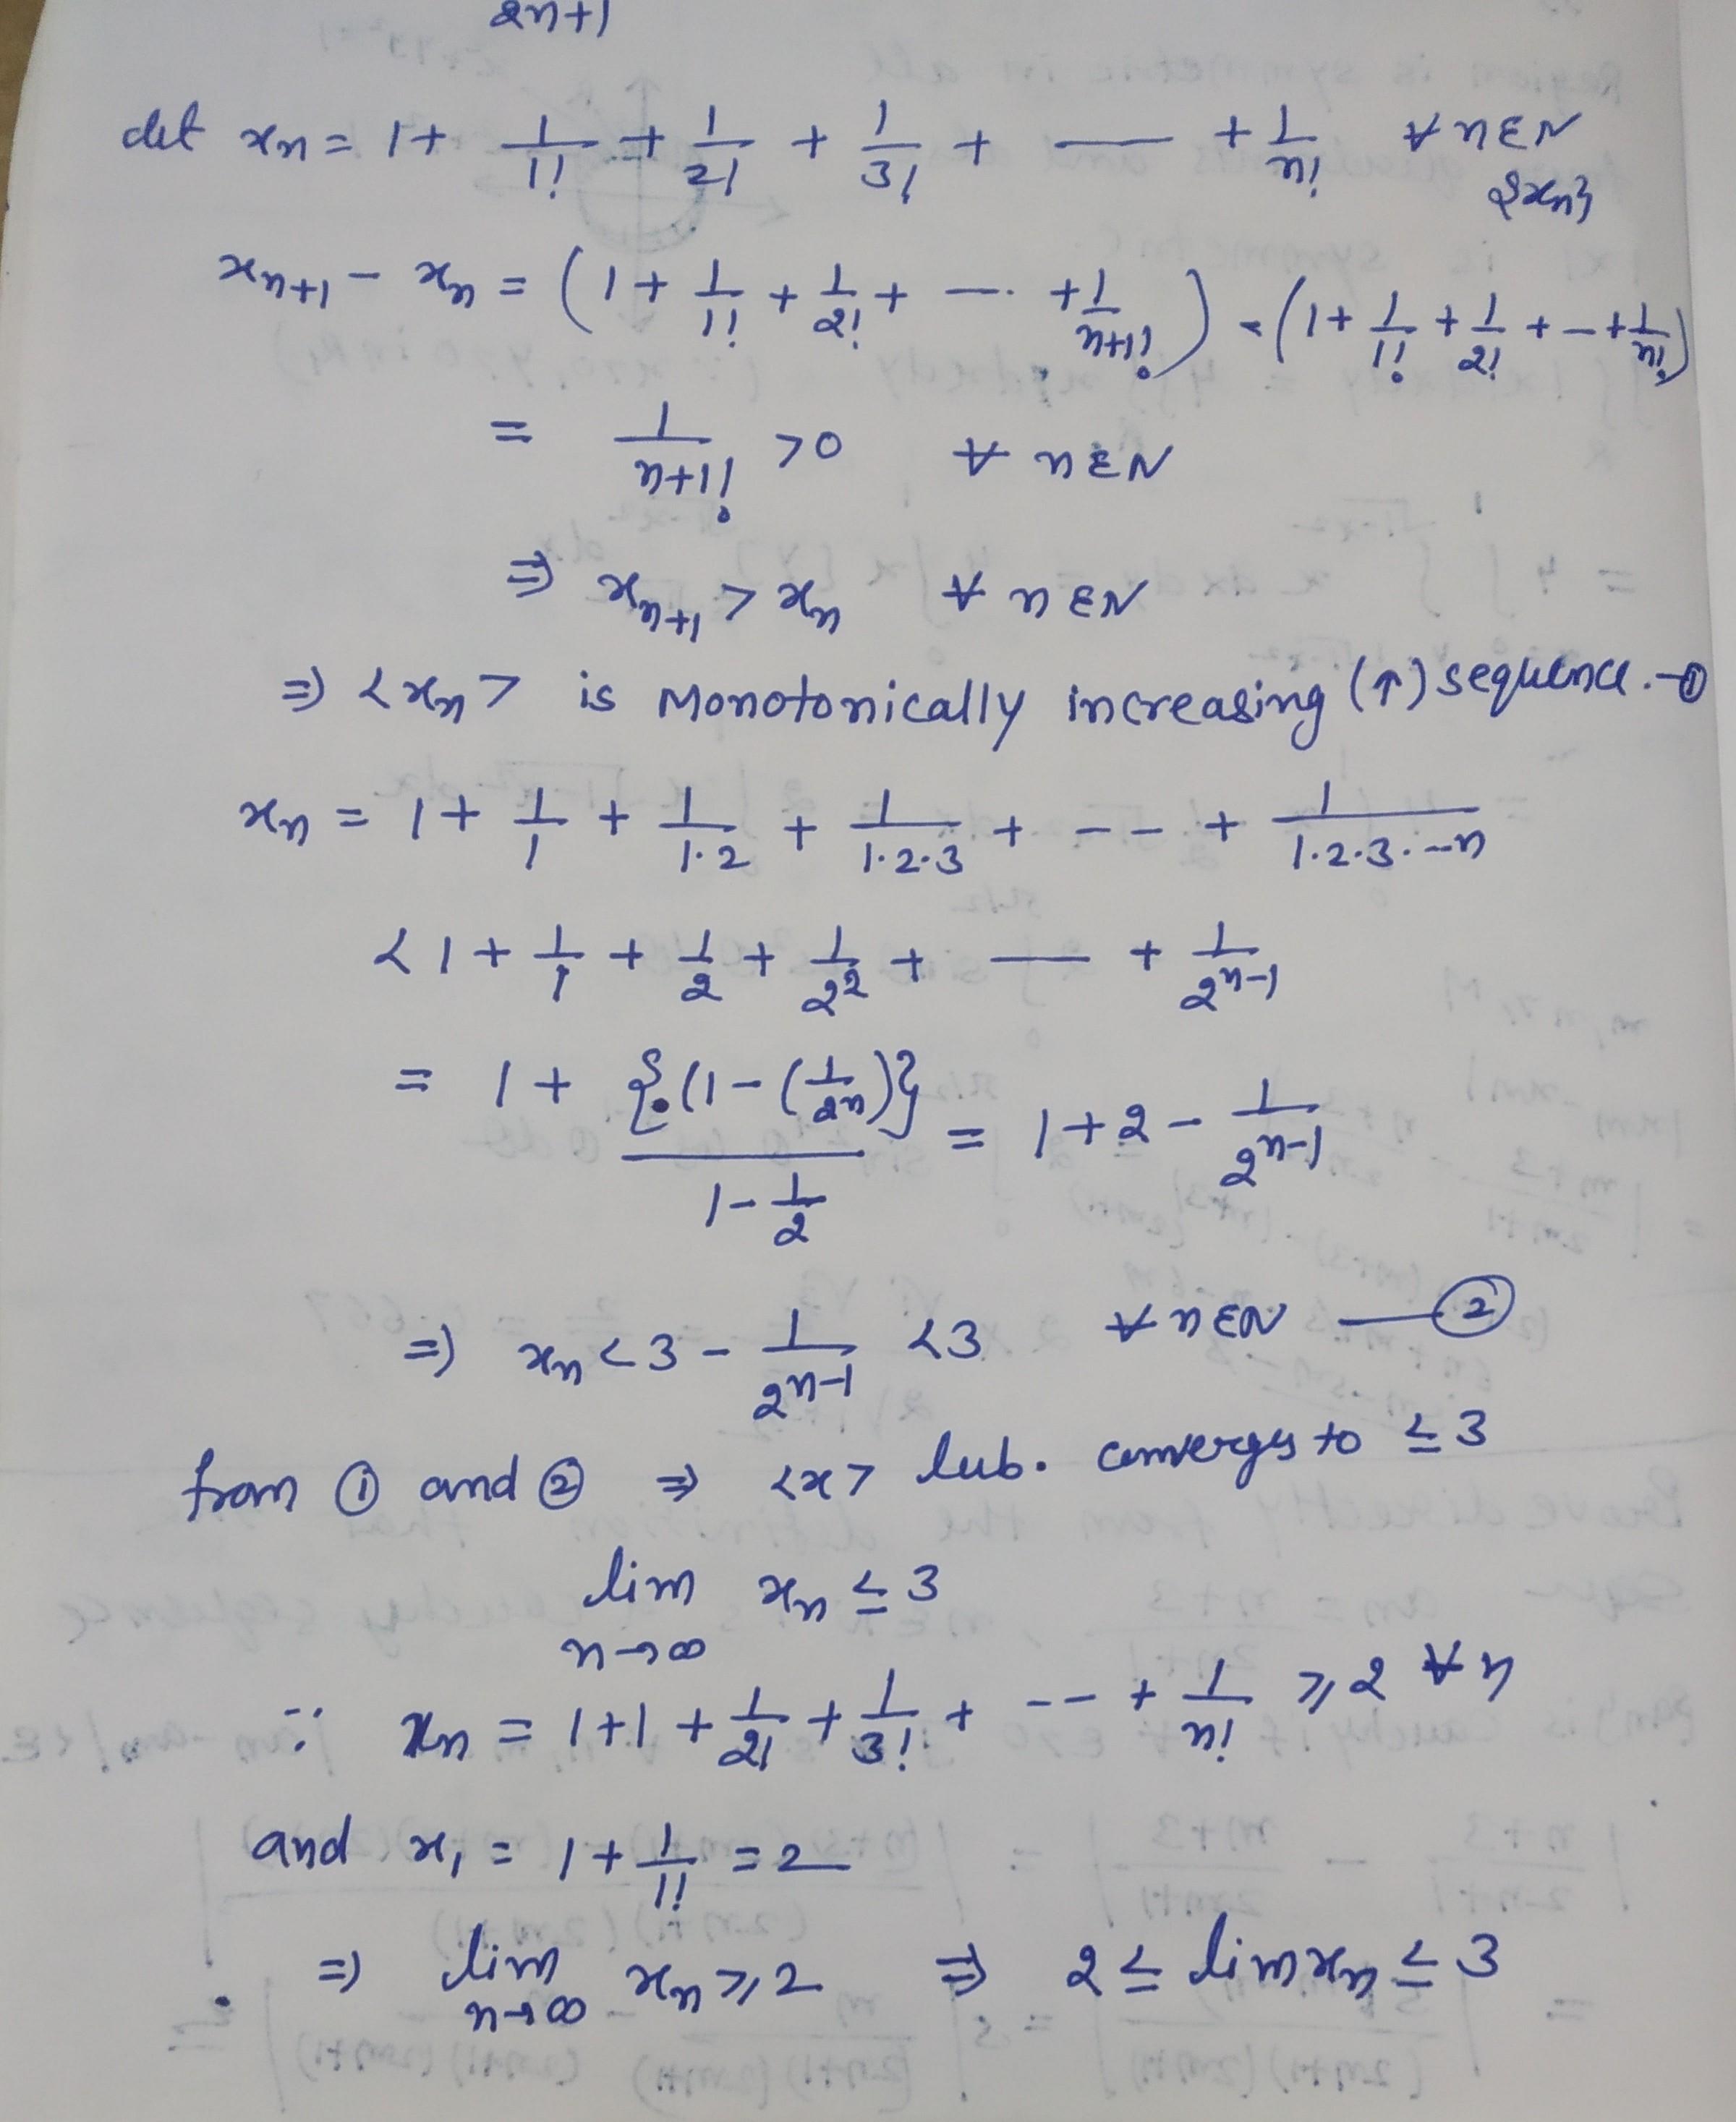 2n+1
Let xn = 1 + 1/1! + 1/2! + 1/3! + — + 1/n! ∀ n∈N
{xn}
xn+1 − xn = (1 + 1/1! + 1/2! + −· + 1/n+1!) − (1 + 1/1! + 1/2! + − + 1/n!)
= 1/n+1! >0 ∀ n∈N
⇒ xn+1 > xn ∀ n∈N
⇒ <xn> is Monotonically increasing (↑) sequence. −①
xn = 1 + 1/1 + 1/1·2 + 1/1·2·3 + −− + 1/1·2·3·−n
< 1 + 1/1 + 1/2 + 1/2² + — + 1/2ⁿ⁻¹
= 1 + {·(1 − (1/2ⁿ)}/1 − 1/2 = 1 + 2 − 1/2ⁿ⁻¹
⇒ xn < 3 − 1/2ⁿ⁻¹ < 3 ∀ n∈N — ②
from ① and ② ⇒ <x> lub. converges to ≤ 3
lim n→∞ xn ≤ 3
∵ xn = 1+1 + 1/2! + 1/3! + −− + 1/n! ≥ 2 ∀ n
and x₁ = 1 + 1/1! = 2
⇒ lim n→∞ xn ≥ 2 ⇒ 2 ≤ lim xn ≤ 3